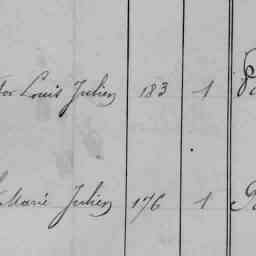 tor Louis Julien 183 1
Marie Julien 176 1